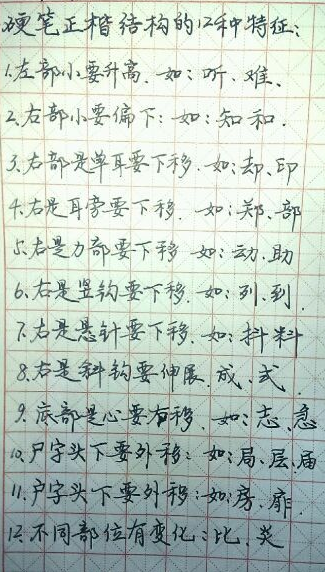 硬笔正楷结构的12种特征:
1.左部小要升高. 如:听、难、
2.右部小要偏下:如:知和.
3.右部是单耳要下移.如:却、印
4.右是耳旁要下移.如:郑、部
5.右是力部要下移 如:动、助
6.右是竖钩要下移.如:列、到.
7.右是悬针要下移.如:抖料
8.右是斜钩要伸展.成、式.
9.底部是心要右移.如:志、急
10.尸字头下要外移:如:局、层、届
11.户字头下要外移:如:房、扉.
12.不同部位有变化:比、炎